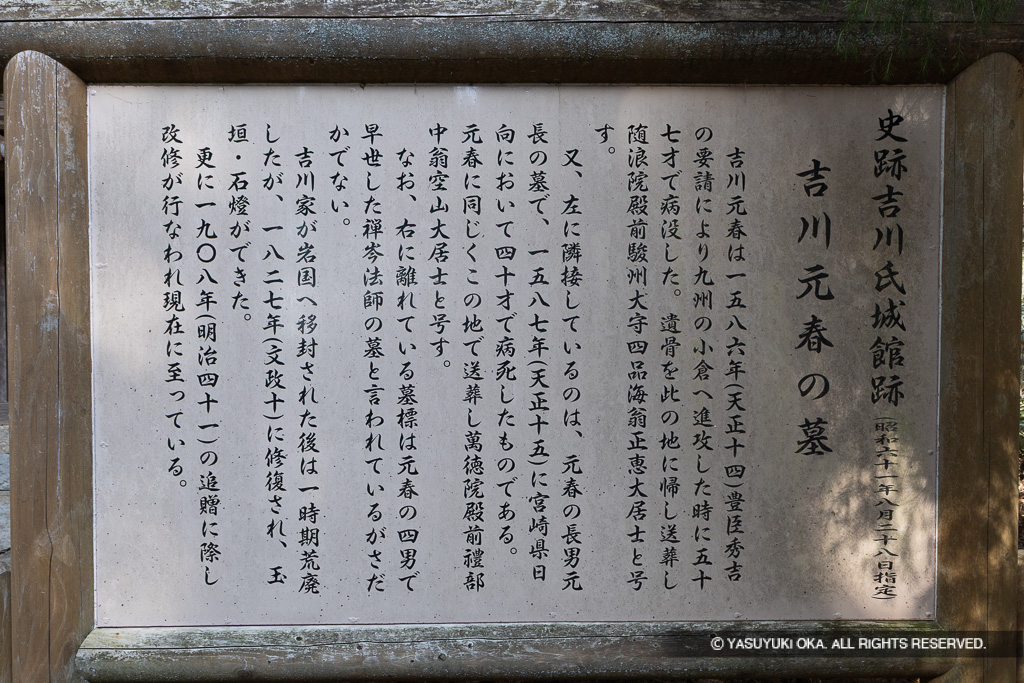 史跡吉川氏城館跡(昭和六十一年八月二十八日指定)
吉川元春の墓
吉川元春は一五八六年(天正十四)豊臣秀吉
の要請により九州の小倉へ進攻した時に五十
七才で病没した。遺骨を此の地に帰し送葬し
随浪院殿前駿州大守四品海翁正恵大居士と号
す。
又、左に隣接しているのは、元春の長男元
長の墓で、一五八七年(天正十五)に宮崎県日
向において四十才で病死したものである。
元春に同じくこの地で送葬し萬徳院殿前禮部
中翁空山大居士と号す。
なお、右に離れている墓標は元春の四男で
早世した禅岑法師の墓と言われているがさだ
かでない。
吉川家が岩国へ移封された後は一時期荒廃
したが、一八二七年(文政十)に修復され、玉
垣・石燈ができた。
更に一九〇八年(明治四十一)の追贈に際し
改修が行なわれ現在に至っている。
© YASUYUKI OKA. ALL RIGHTS RESERVED.